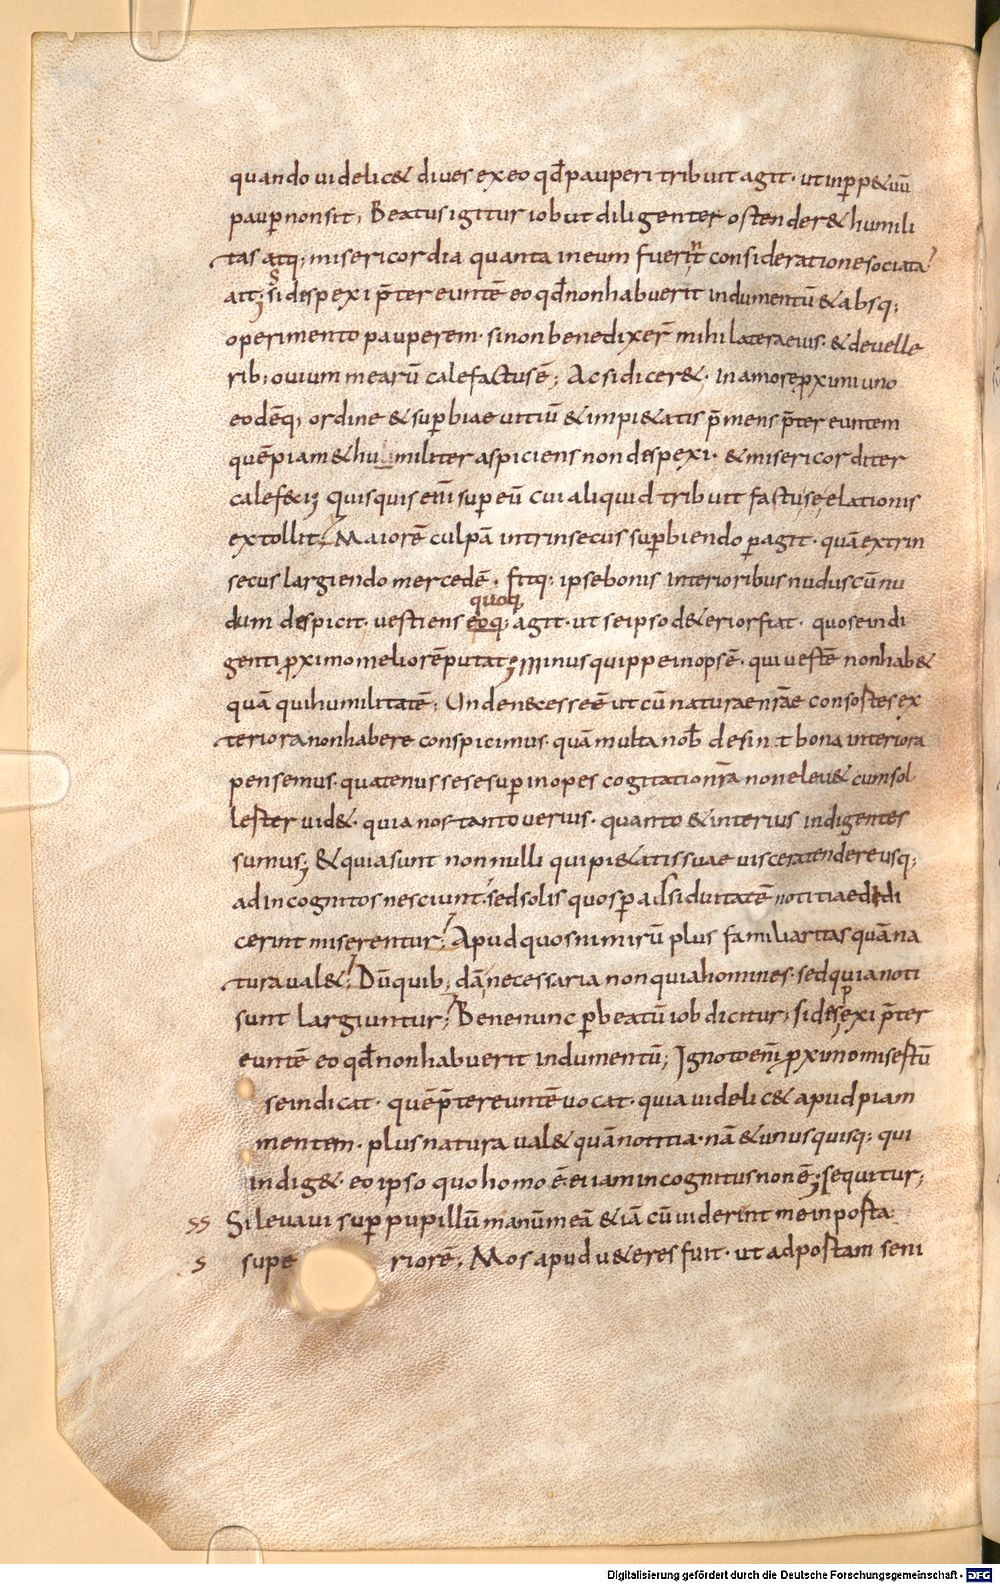 quando uidelic& diues ex eo qđ pauperi tribuit agit · ut inp̄p&uū
paup̄ non sit ; Beatus igitur iob ut diligenter ostender& humili
tas atq; misericordia quanta in eum fuerint consideratione sociata
ait ; Si despexi p̄tereuntē eo qđ non habuerit indumentū & absq;
operimento pauperem · si non benedixer̄ mihi latera eius · & de uelle
rib; ouium mearū calefactus ē ; Ac si dicer& · In amore p̱ximi uno
eodēq; ordine & sup̄biae uitiū & impi&atis p̄mens p̄tereuntem
quēpiam & humiliter aspiciens non despexi · & misericorditer
calefeci ; Quisquis enī sup eū cui aliquid tribuit fastuse elationis
extollit ; Maiorē culpā intrinsecus sup̄biendo p̱agit · quā extrin
secus largiendo mercedē · fitq; ipse bonis interioribus nudus cū nu
dum despicit · uestiens eoq; agit · ut se ipso d&erior fiat · quo se indi
quoq,
genti p̱ximo meliorē putat ; Minus quippe inops ē · qui uestē non hab&
quā qui humilitatē ; Unde necesse ē ut cū naturae nr̄ae consostes ex
teriora non habere conspicimus · quā multa nob̄ desint bona interiora
pensemus · quatenus sese sup inopes cogitatio nr̄a non eleu& cum sol
lester uid& · quia nos tanto uerius · quanto & interius indigentes
sumus ; & quia sunt nonnulli qui pi&atis suae uiscera tendere usq;
ad incognitos nesciunt · sed solis quos p̱ adsiduitatē notitiae dedi
cerint miserentur ; Apud quos nimirū plus familiaritas quā na
tura ual& ; Dū quib; dā necessaria non quia homines · sed quia noti
sunt largiuntur ; Bene nunc p̱ beatū iob dicitur ; si despexi p̄ter
euntē eo qđ non habuerit indumentū ; Ignoto enī p̱ximo mis estū
se indicat · quē p̄tereuntē uocat · quia uidelic& apud piam
mentem · plus natura ual& quā notitia · nā & unusquisq; qui
indig& · eo ipso quo homo ē · ei iam incognitus non ē ; Sequitur ;
SS Si leuaui sup pupillū manū meā & iā cū uiderint me in posta
S supe riorē ; Mos apud u&eres fuit · ut ad postam seni
Digitalisierung gefördert durch die Deutsche Forschungsgemeinschaft - DFG